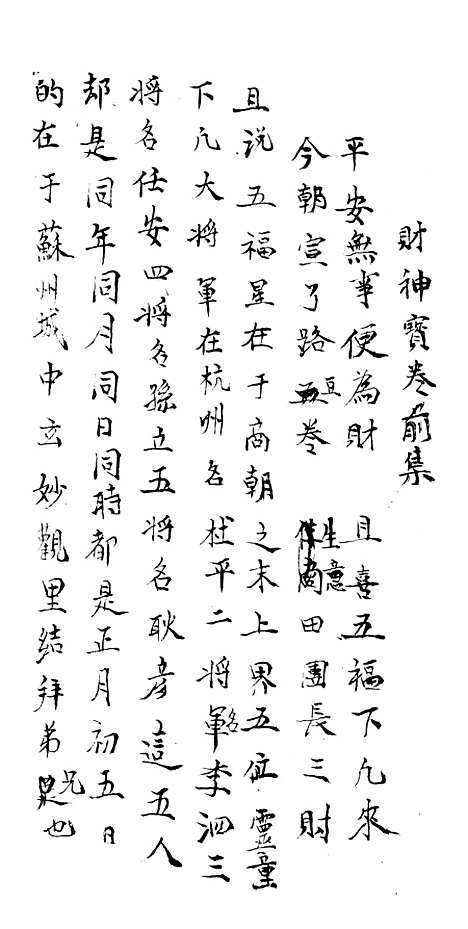 財神寶卷前集
平安無事便為財 且喜五福下凡來
今朝宣了路頭卷 生意田團長三財
且説五福星在于商朝之末上界五位靈童
下凡大將軍在杭州名杜平二將軍名李泗三
將名任安四將名孫立五將名耿彦這五人
却是同年同月同日同時都是正月初五日
的在于蘇州城中玄妙觀里結拜弟兄是也